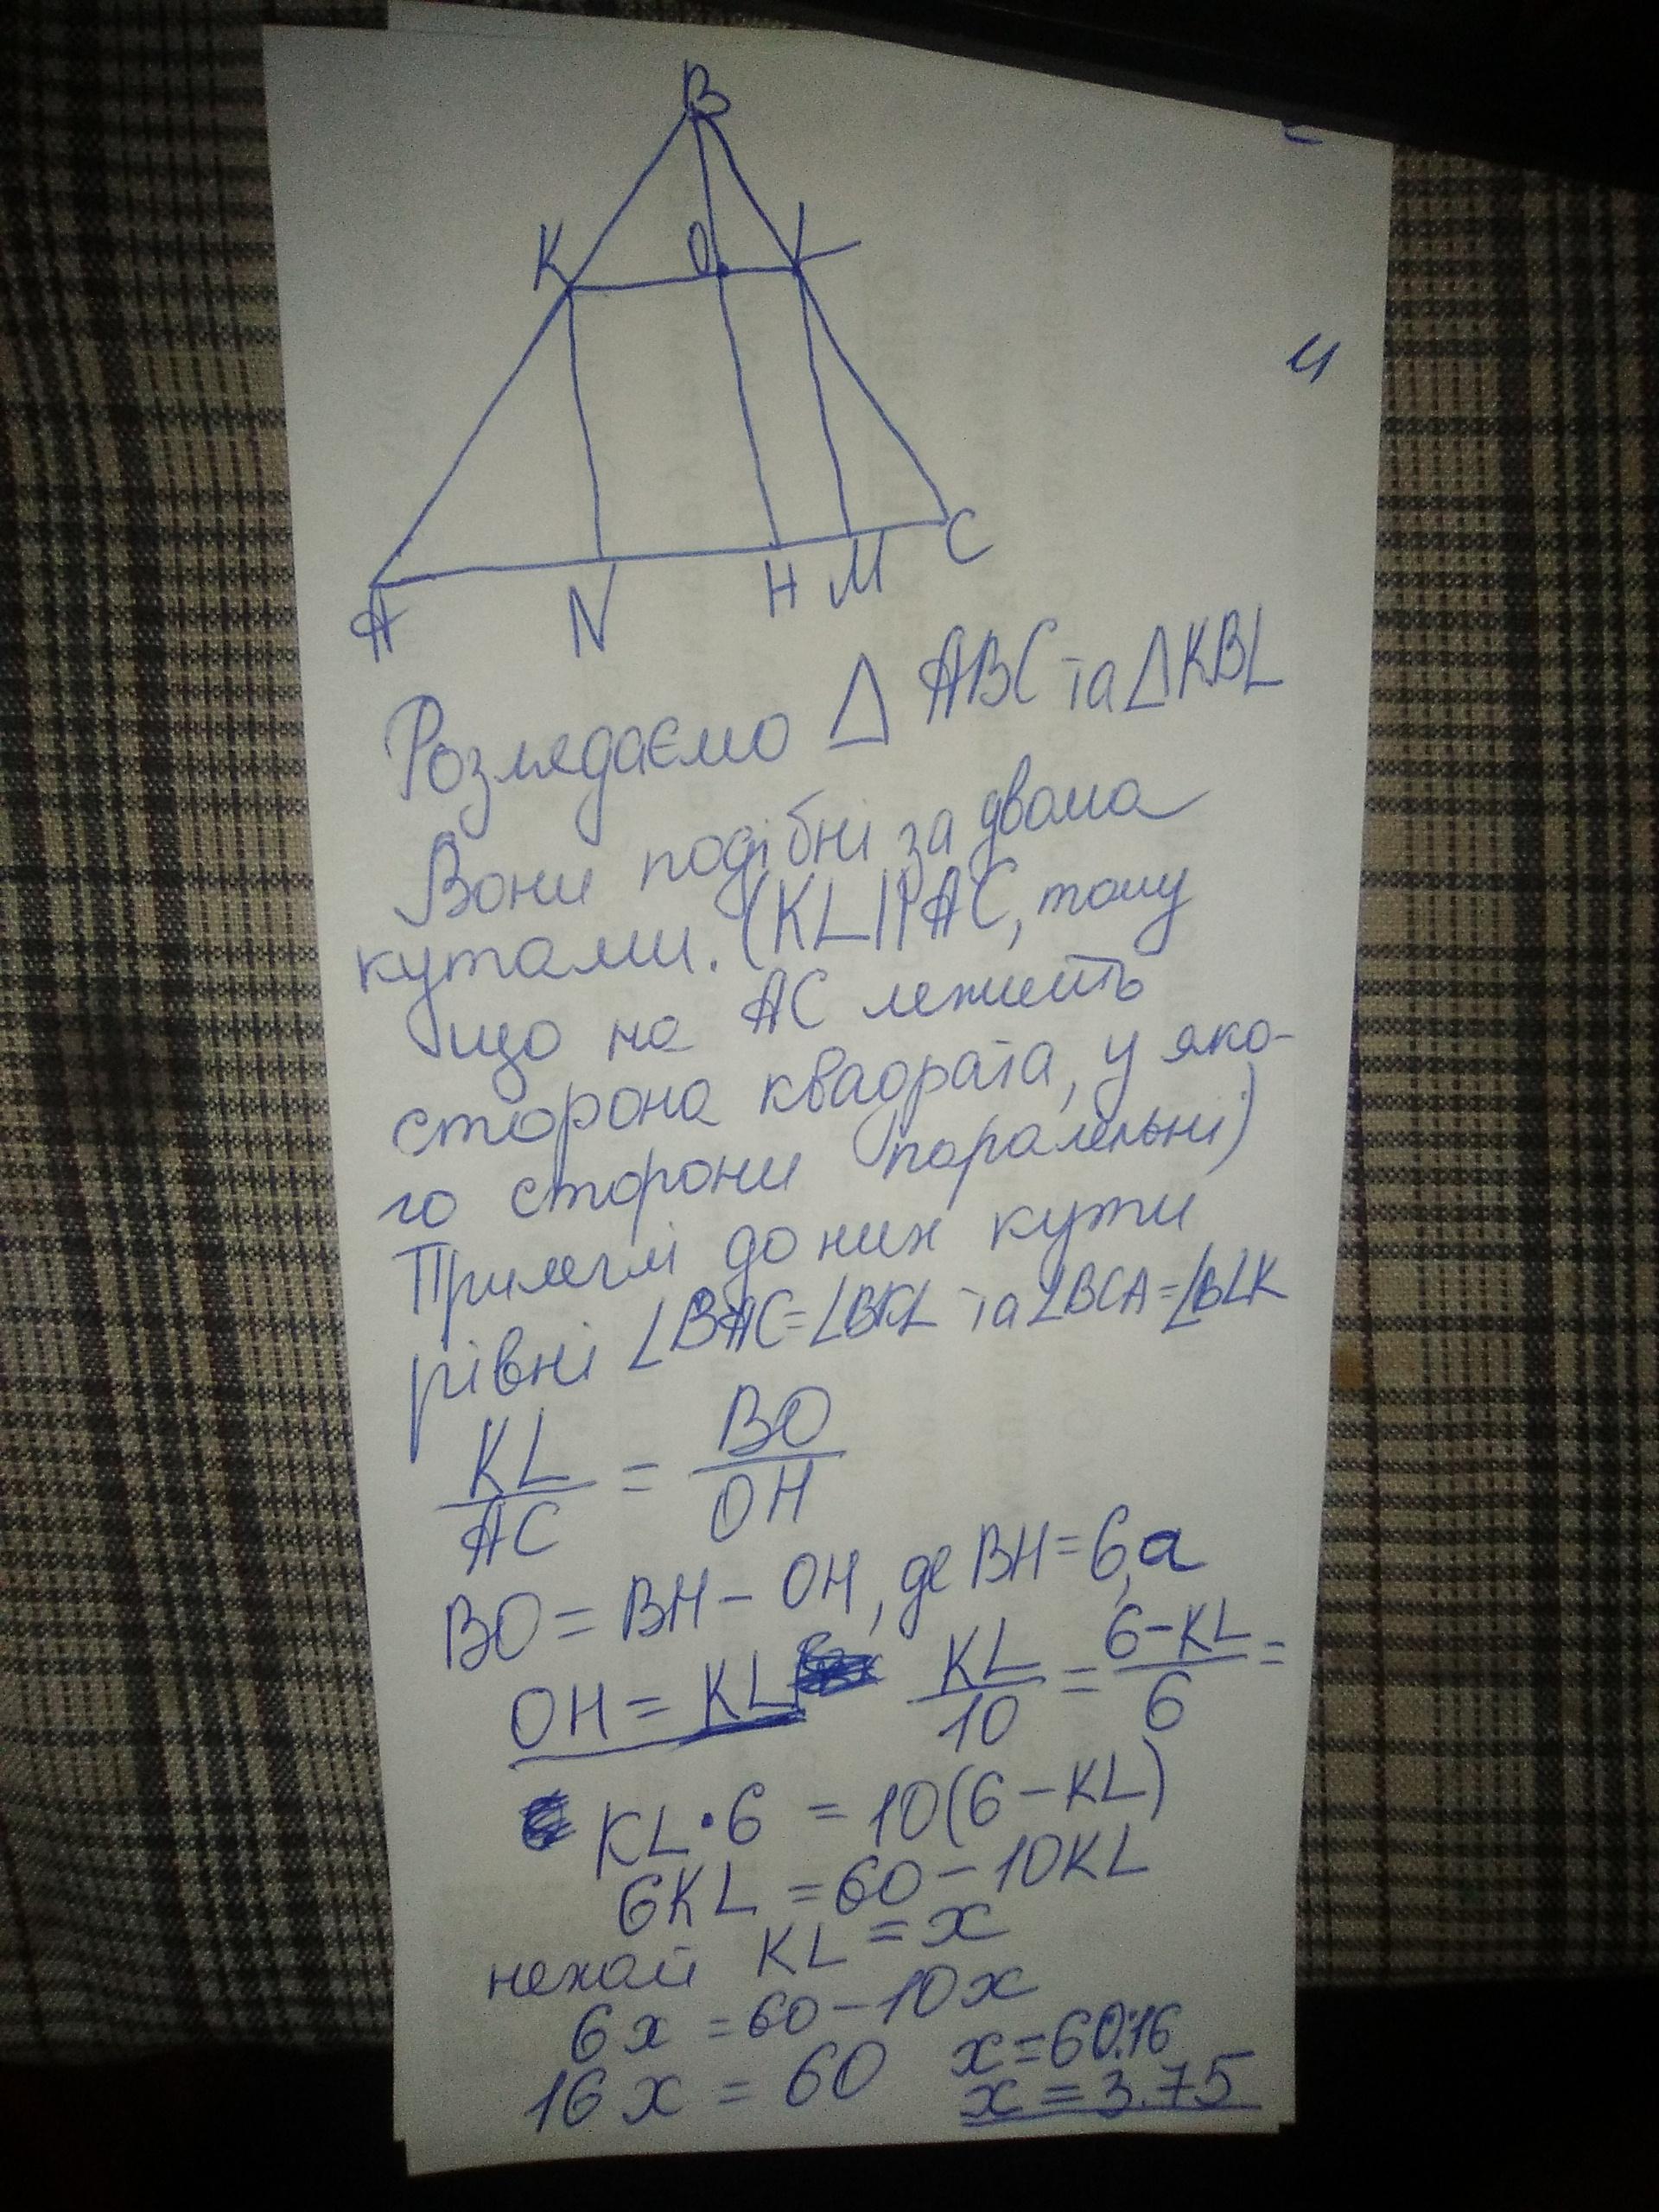 B
K O L
A N H M C
ч
Розглядаємо Δ ABC та Δ KBL
Вони подібні за двома
кутами. (KL || AC, тому
що на AC лежить
сторона квадрата, у яко-
го сторони паралельні)
Прилеглі до них кути
рівні ∠BAC=∠BKL та ∠BCA=∠BLK
KL/AC = BO/OH
BO = BH - OH, де BH = 6, а
OH = KL KL/10 = 6-KL/6 =
KL·6 = 10(6-KL)
6KL = 60-10KL
нехай KL = x
6x = 60-10x
16x = 60 x=60:16
x = 3.75